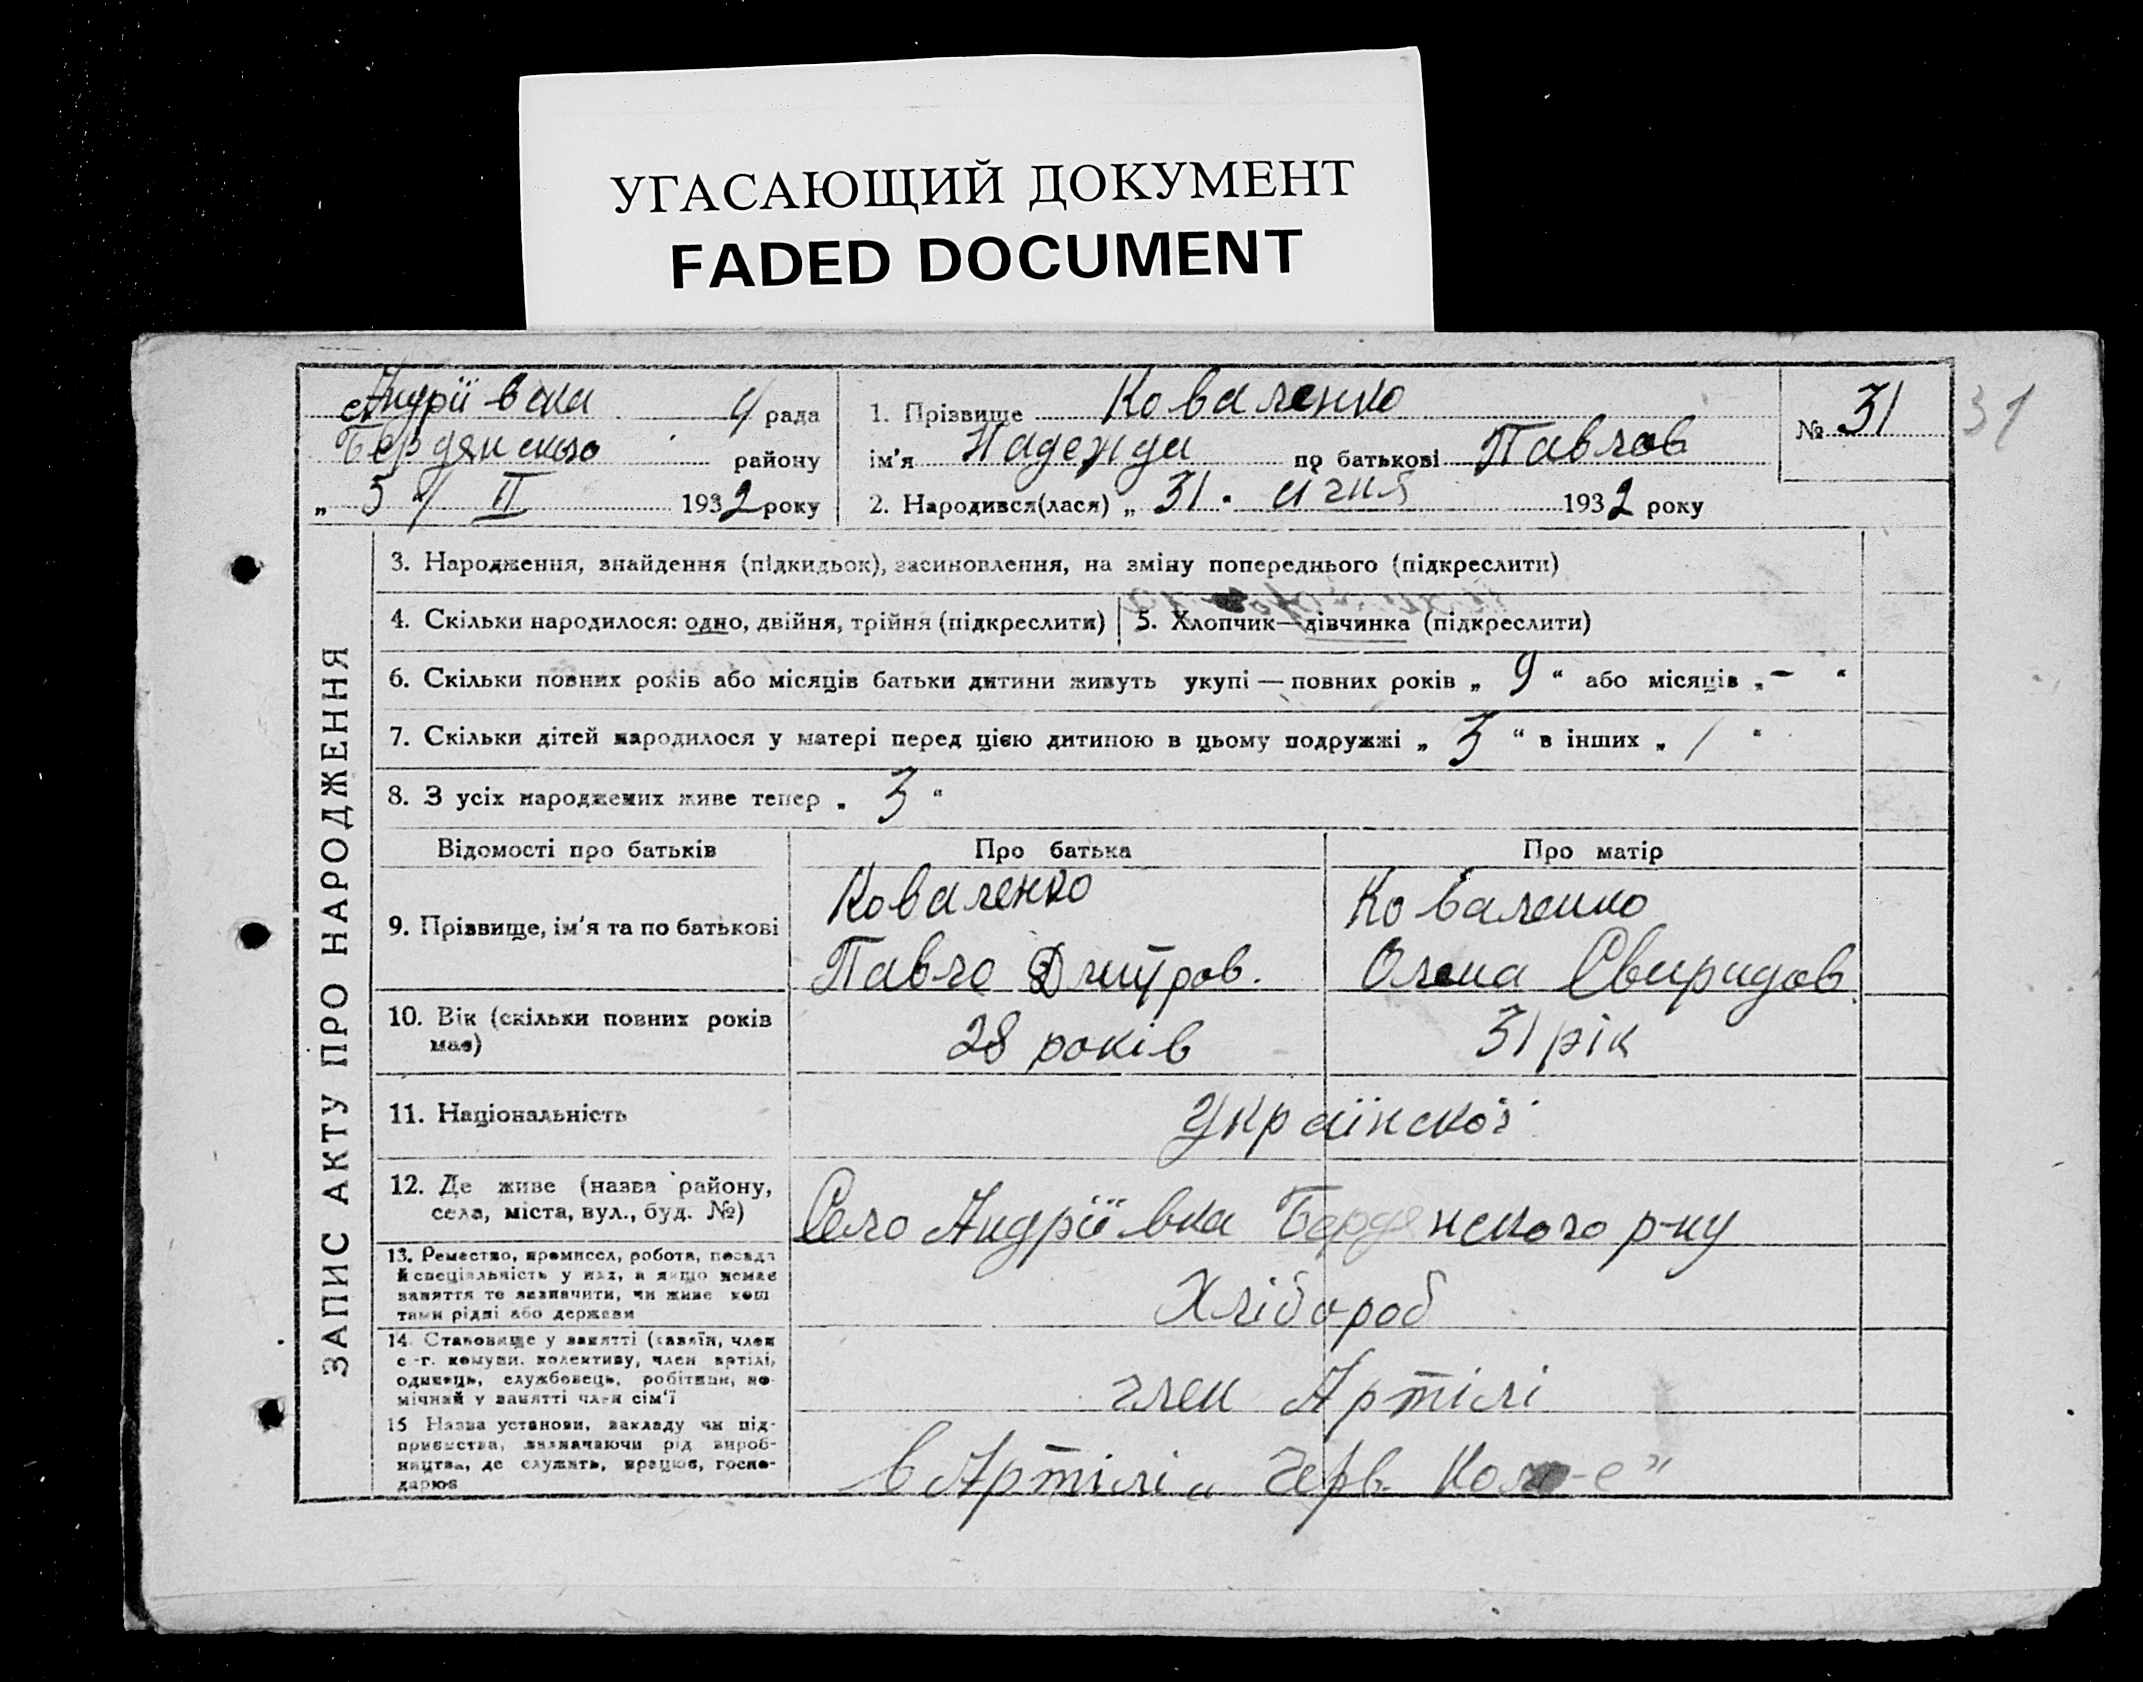 УГАСАЮЩИЙ ДОКУМЕНТ
FADED DOCUMENT
Андріївска с/ рада
Бердянського району
„ 5 / II 1932 року
1. Прізвище Коваленко
ім'я Надежда по батькові Павлов
2. Народився(лася) „ 31 " 1932 року
№ 31
31
ЗАПИС АКТУ ПРО НАРОДЖЕННЯ
3. Народження, знайдення (підкидьок), засиновлення, на зміну попереднього (підкреслити)
4. Скільки народилося: одно, двійня, трійня (підкреслити)
5. Хлопчик—дівчинка (підкреслити)
6. Скільки повних років або місяців батьки дитини живуть укупі — повних років „ 9 “ або місяців „ - “
7. Скільки дітей народилося у матері перед цією дитиною в цьому подружжі „ 3 “ в інших „ 1 “
8. З усіх народжених живе тепер „ 3 “
Відомості про батьків Про батька Про матір
9. Прізвище, ім'я та по батькові
Коваленко
Павло Дмитров.
Коваленко
Олена Свиридов.
10. Вік (скільки повних років
має)
28 років
31 рік
11. Національність
Українскої
12. Де живе (назва району,
села, міста, вул., буд. №)
Село Андріївка Берденского р-ну
13. Ремество, промисел, робота, посада
й спеціяльність у них, а якщо немає
заняття то визначити, чи живе кош
тами рідні або держави
Хлібороб
14. Становище у занятті (хазяїн, член
с.-г. комуни, колективу, член артілі,
одинець, службовець, робітник, по-
мічний у занятті член сім'ї
член Артілі
15 Назва установи, закладу чи під-
приємства, зазначаючи рід вироб-
ництва, де служить, працює, госпо-
дарює
в Артілі „ Черв.